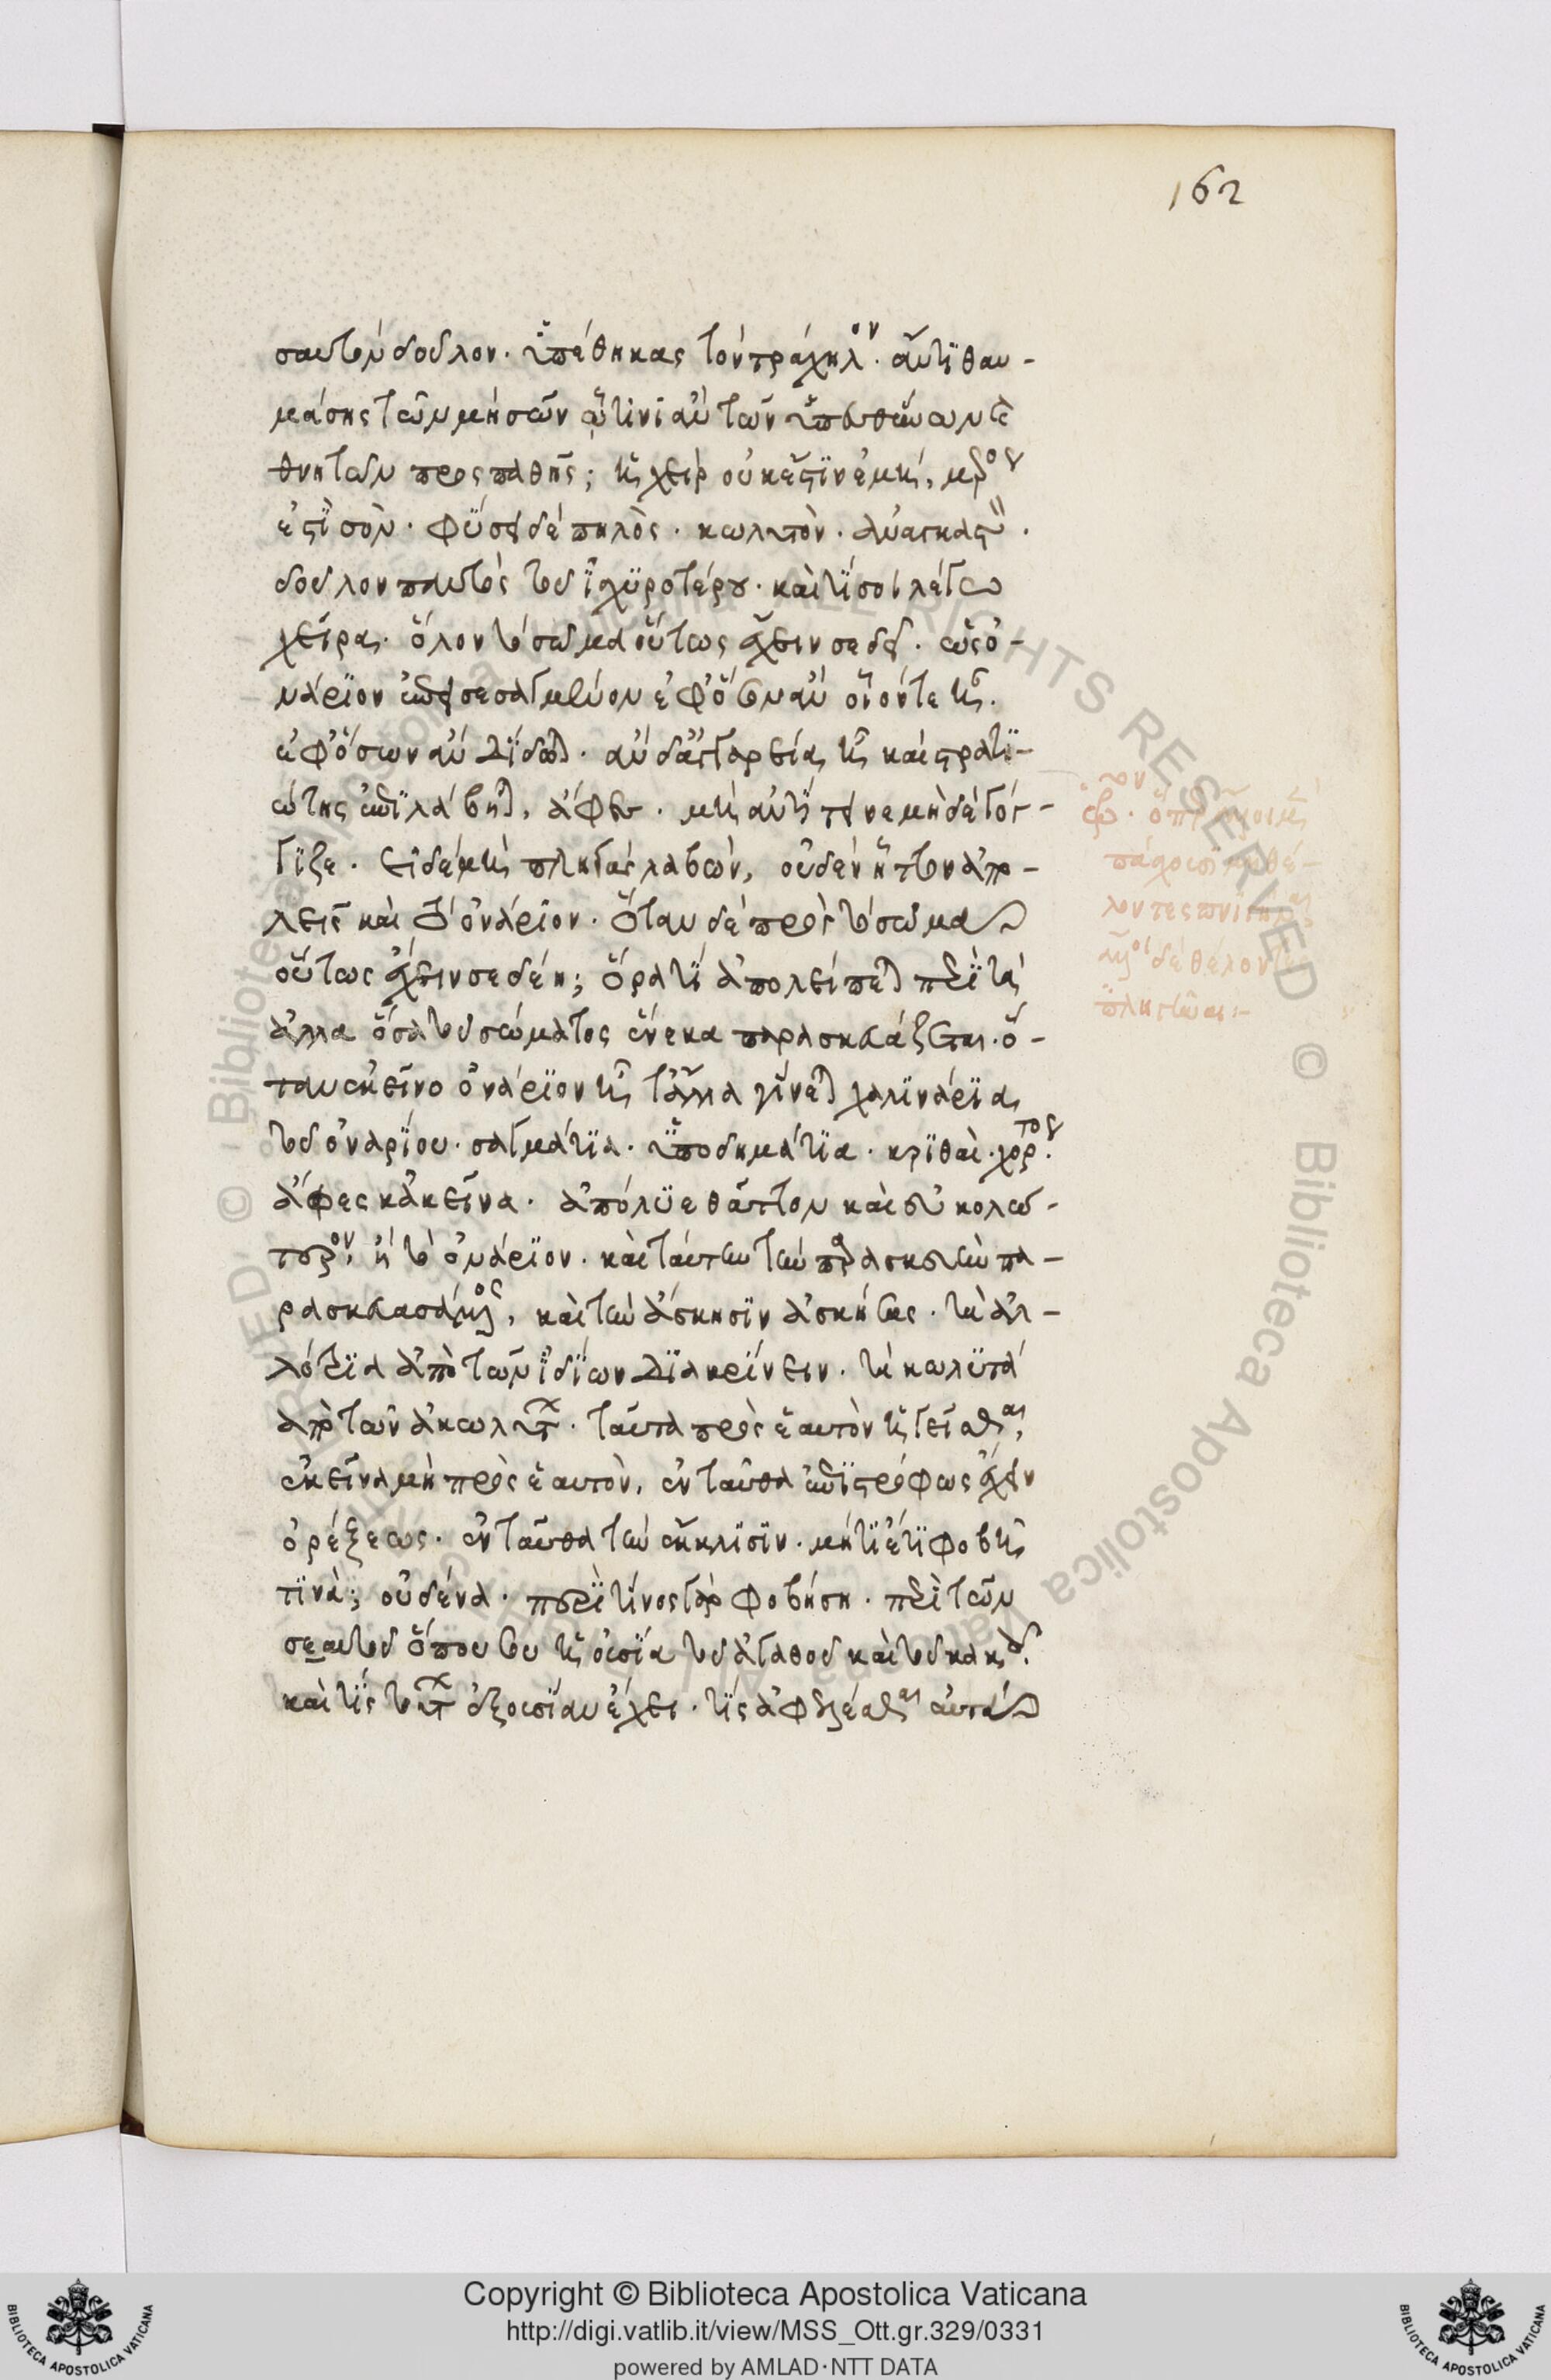 162
σαυτὸν δοῦλον. ὑπέθηκας τὸν τράχηλον. ἄν τι θαυ-
μάσῃς τῶν μὴ σῶν ᾧτινι ἂν τῶν ὑπευθύνων τὲ
θνητῶν προςπαθῇς; ἡ χεὶρ οὐκ ἔστϊν ἐμή, μέρος
ἐστϊ σὸν. φύσει δὲ πηλὸς. κωλυτὸν. ἀναγκαστὸν.
δοῦλον παντὸς τοῦ ἰσχυροτέρου. καὶ τί σοι λέγω
χεῖρα. ὅλον τὸ σῶμα οὕτως ἔχειν σε δεῖ. ὡς ὀ-
νάριον ἐπισεσαγμένον ἐφ' ὅσον ἂν οἷόν τε ᾖ.
ἐφ' ὅσων ἂν δίδωται. ἂν δ' ἀγγαρεία ᾖ καὶ στρατι-
ώτης ἐπιλάβηται, ἄφες. μὴ ἀντίτεινε μηδὲ γόγ-
γϊζε. εἰ δὲ μὴ πληγὰς λαβών, οὐδὲν ἧττον ἀπο-
λεῖς καὶ τὸ ὀνάριον. ὅταν δὲ πρὸς τὸ σῶμα
οὕτως ἔχειν σε δέῃ; ὅρα τί ἀπολείπεται περὶ τὰ
ἄλλα ὅσα τοῦ σώματος ἕνεκα παρασκευάζεται. ὅ-
ταν ἐκεῖνο ὀνάριον ᾖ τἄλλα γίνεται χαλινάρια
τοῦ ὀναρίου. σαγμάτια. ὑποδημάτια. κριθαὶ. χόρτος.
ἄφες κἀκεῖνα. ἀπόλυε θᾶττον καὶ εὐκολώ-
τερον, ἢ τὸ ὀνάριον. καὶ ταύτην τὴν παρασκευὴν πα-
ρασκευασάμενος, καὶ τὴν ἄσκησιν ἀσκήσας. τὰ ἀλ-
λότρια ἀπὸ τῶν ἰδίων διακρίνειν. τὰ κωλυτὰ
ἀπὸ τῶν ἀκωλύτων. ταῦτα πρὸς ἑαυτὸν ἡγεῖσθαι,
ἐκεῖνα μὴ πρὸς ἑαυτὸν, ἐνταῦθα ἐπιστρόφως ἔχειν
ὀρέξεως. ἐνταῦθα τὴν ἔκκλισιν. μή τι ἔτι φοβῇ
τινά; οὐδένα. περὶ τίνος γὰρ φοβήσῃ. περὶ τῶν
σεαυτοῦ ὅπου σου ἡ οὐσία τοῦ ἀγαθοῦ καὶ τοῦ κακοῦ.
καὶ τίς τούτων ἐξουσίαν ἔχει. τίς ἀφελέσθαι αὐτὰ